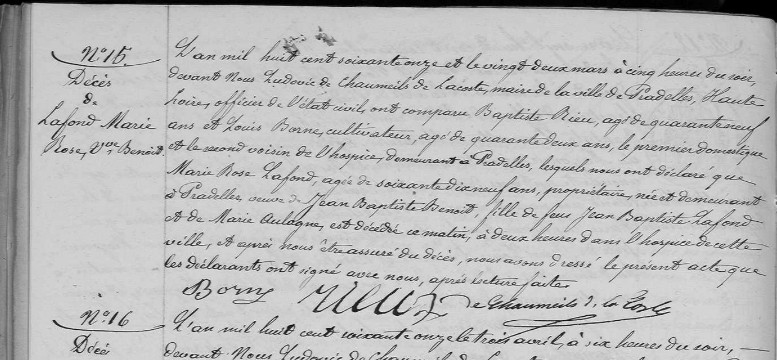 N° 15
Décès
de
Lafond Marie
Rose, Vve Benoit
L'an mil huit cent soixante onze et le vingt deux mars à cinq heures du soir,
devant Nous Ludovic de Chaumeils de Lacoste, maire de la ville de Pradelles, Haute
Loire, officier de l'état civil, ont comparu Baptiste Rieu, agé de quarante neuf
ans et Louis Borne, cultivateur, agé de quarante deux ans, le premier domestique
et le second voisin de l'hospice, demeurant à Pradelles, lesquels nous ont déclaré que
Marie Rose Lafond, agée de soixante dix neuf ans, propriétaire, née et demeurant
à Pradelles, veuve de Jean Baptiste Benoit, fille de feus Jean Baptiste Lafond
et de Marie Aulagne, est décédée ce matin, à deux heures dans l'hospice de cette
ville, et après nous être assuré du décès, nous avons dressé le présent acte que
les déclarants ont signé avec nous, après lecture faite.
Borne Rieu de Chaumeils de la Coste
N° 16
Décès
L'an mil huit cent soixante onze le trois avril, à six heures du soir,
devant Nous Ludovic de Chaumeils de